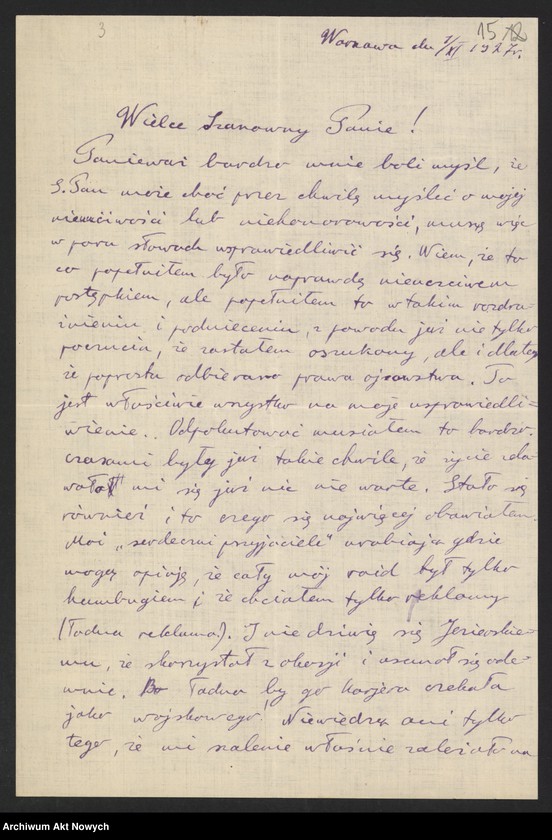 3
15 12
Warszawa dn 7/XI 1927r.
Wielce Szanowny Panie!
Ponieważ bardzo mnie boli myśl, że
S. Pan może choć przez chwilę myśleć o mojej
nieuczciwości lub niehonorowości, muszę więc
w paru słowach usprawiedliwić się. Wiem, że to
co popełniłem było naprawdę nieuczciwem
postępkiem, ale popełniłem to w takim rozdra-
żnieniu i podnieceniu, z powodu już nie tylko
poczucia, że zostałem oszukany, ale i dlatego
że poprostu odbierano prawa ojcowstwa. To
jest właściwie wszystko na moje usprawiedli=
wienie.. Odpokutować musiałem to bardzo.
czasami były już takie chwile, że życie zda
wało mi się już nic nie warte. Stało się
również i to czego się najwięcej obawiałem.
Moi „serdeczni przyjaciele" urabiają gdzie
mogą opinję, że cały mój raid był tylko
humbugiem i że chciałem tylko reklamy
(Ładna reklama). I nie dziwię się Jeziorskie-
mu, że skorzystał z okazji i usunął się ode-
mnie. Bo ładna by go karjera czekała
jako wojskowego! Niewiedzą oni tylko
tego, że mi szalenie właśnie zależało na
Archiwum Akt Nowych